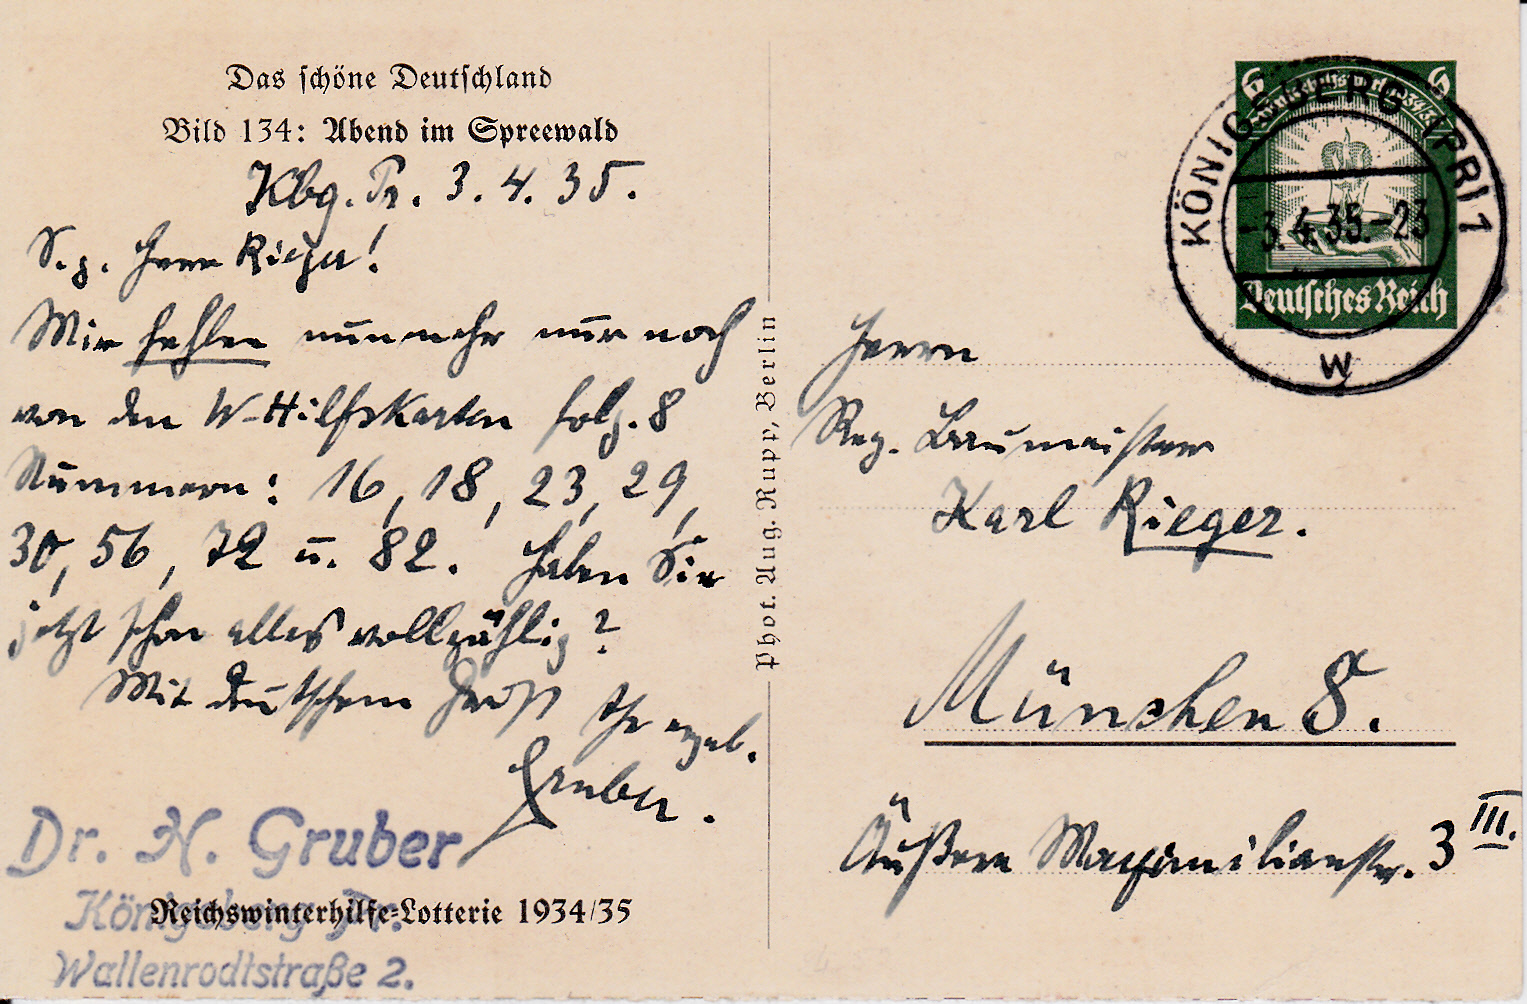 Das schöne Deutschland
Bild 134: Abend im Spreewald
Kbg. Pr. 3. 4. 35.
S. g. Herr Rieger!
Mir fehlen nunmehr nur noch
von den W-Hilfskarten folg. 8
Nummern: 16, 18, 23, 29,
30, 56, 72 u. 82. Haben Sie
jetzt schon alles vollzählig?
Mit deutschem Gruß Ihr ergeb.
Gruber.
Dr. N. Gruber
Königsberg Pr.
Wallenrodtstraße 2.
Reichswinterhilfe-Lotterie 1934/35
Phot. Aug. Rupp, Berlin
6 6
Winterhilfswerk 1934/35
Deutsches Reich
KÖNIGSBERG (PR) 1
-3.4.35.-23
w
Herrn
Reg. Baumeister
Karl Rieger.
München 8.
Äußere Maximilianstr. 3 III.